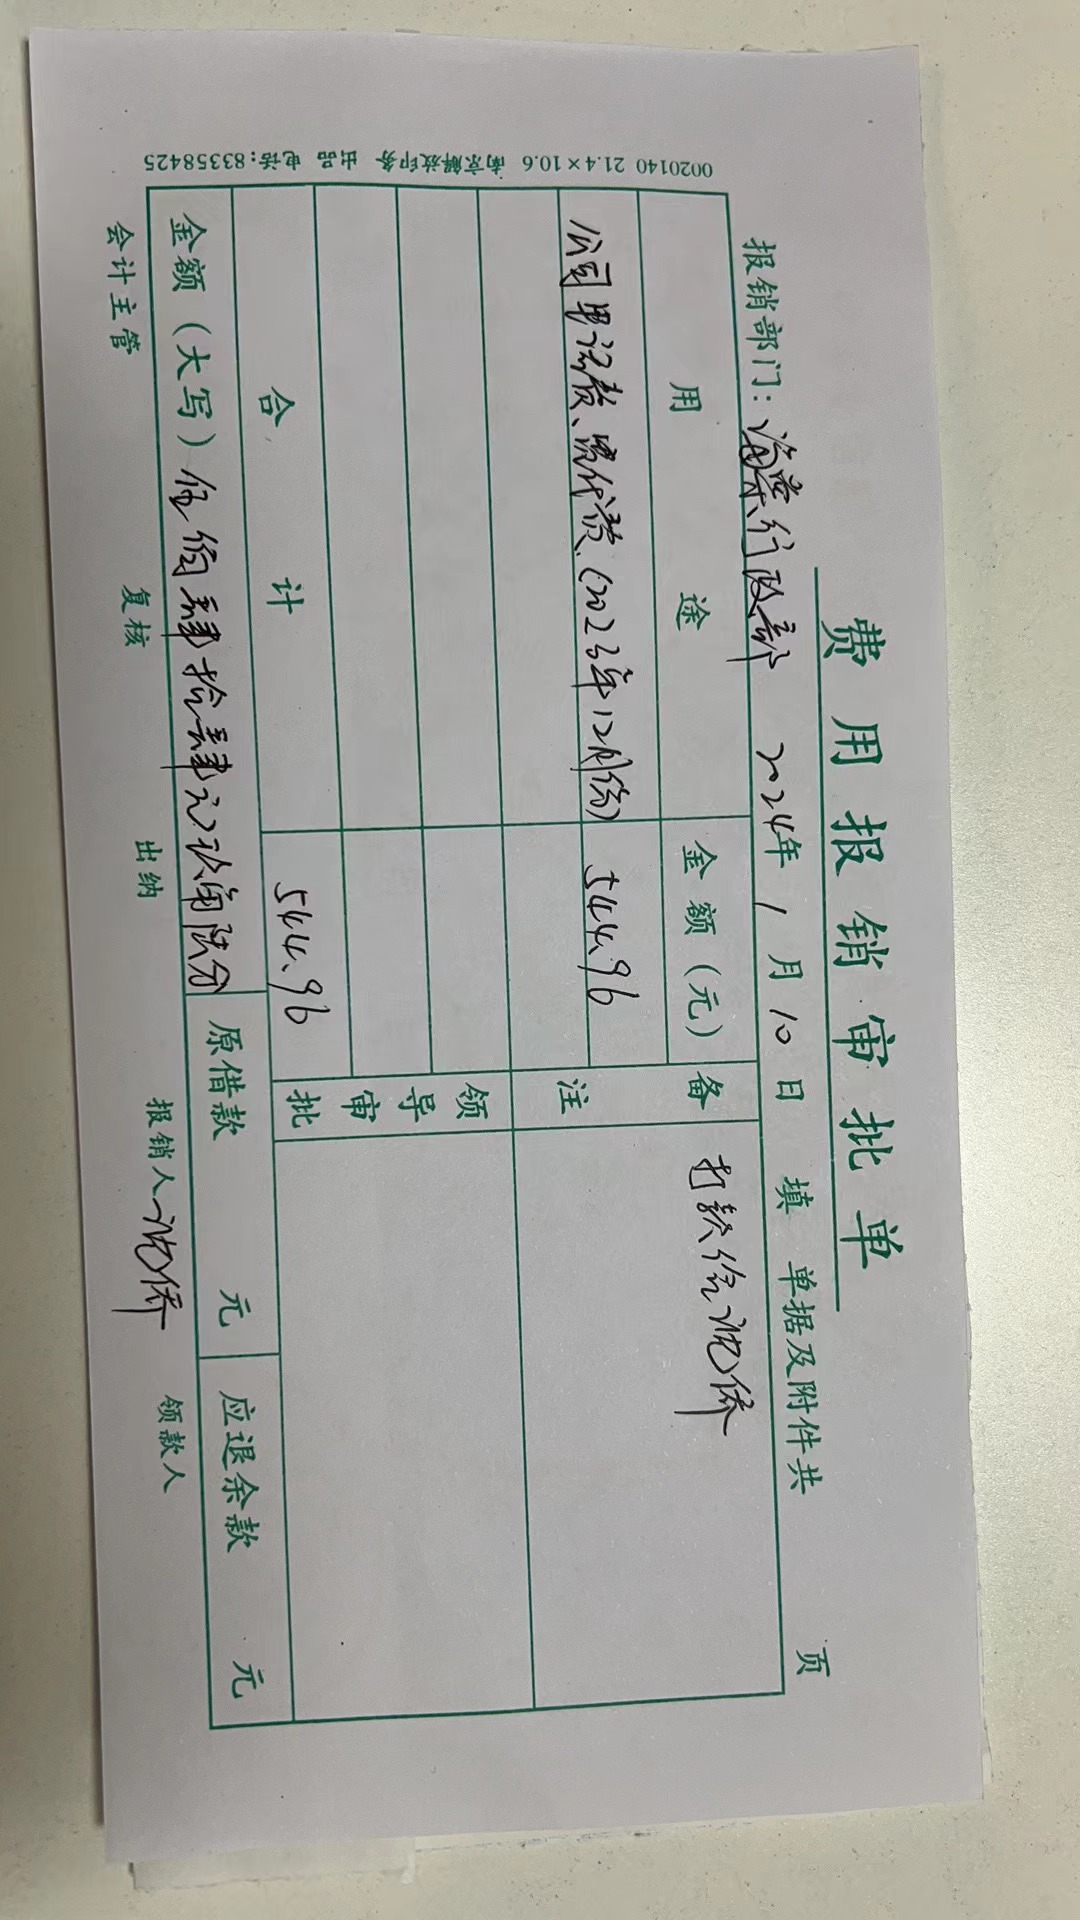 费用报销审批单
报销部门：海棠行政部 2024年1月10日填 单据及附件共 页
用途 金额（元） 备注 打款给沈侨
公司电话费、宽代费（2023年12月份） 544.96
领导审批
合计 544.96
金额（大写）伍佰肆拾肆元玖角陆分 原借款 元 应退余款 元
会计主管 复核 出纳 报销人 沈侨 领款人
0020140 21.4×10.6 南京解放印务 出品 电话:83358425